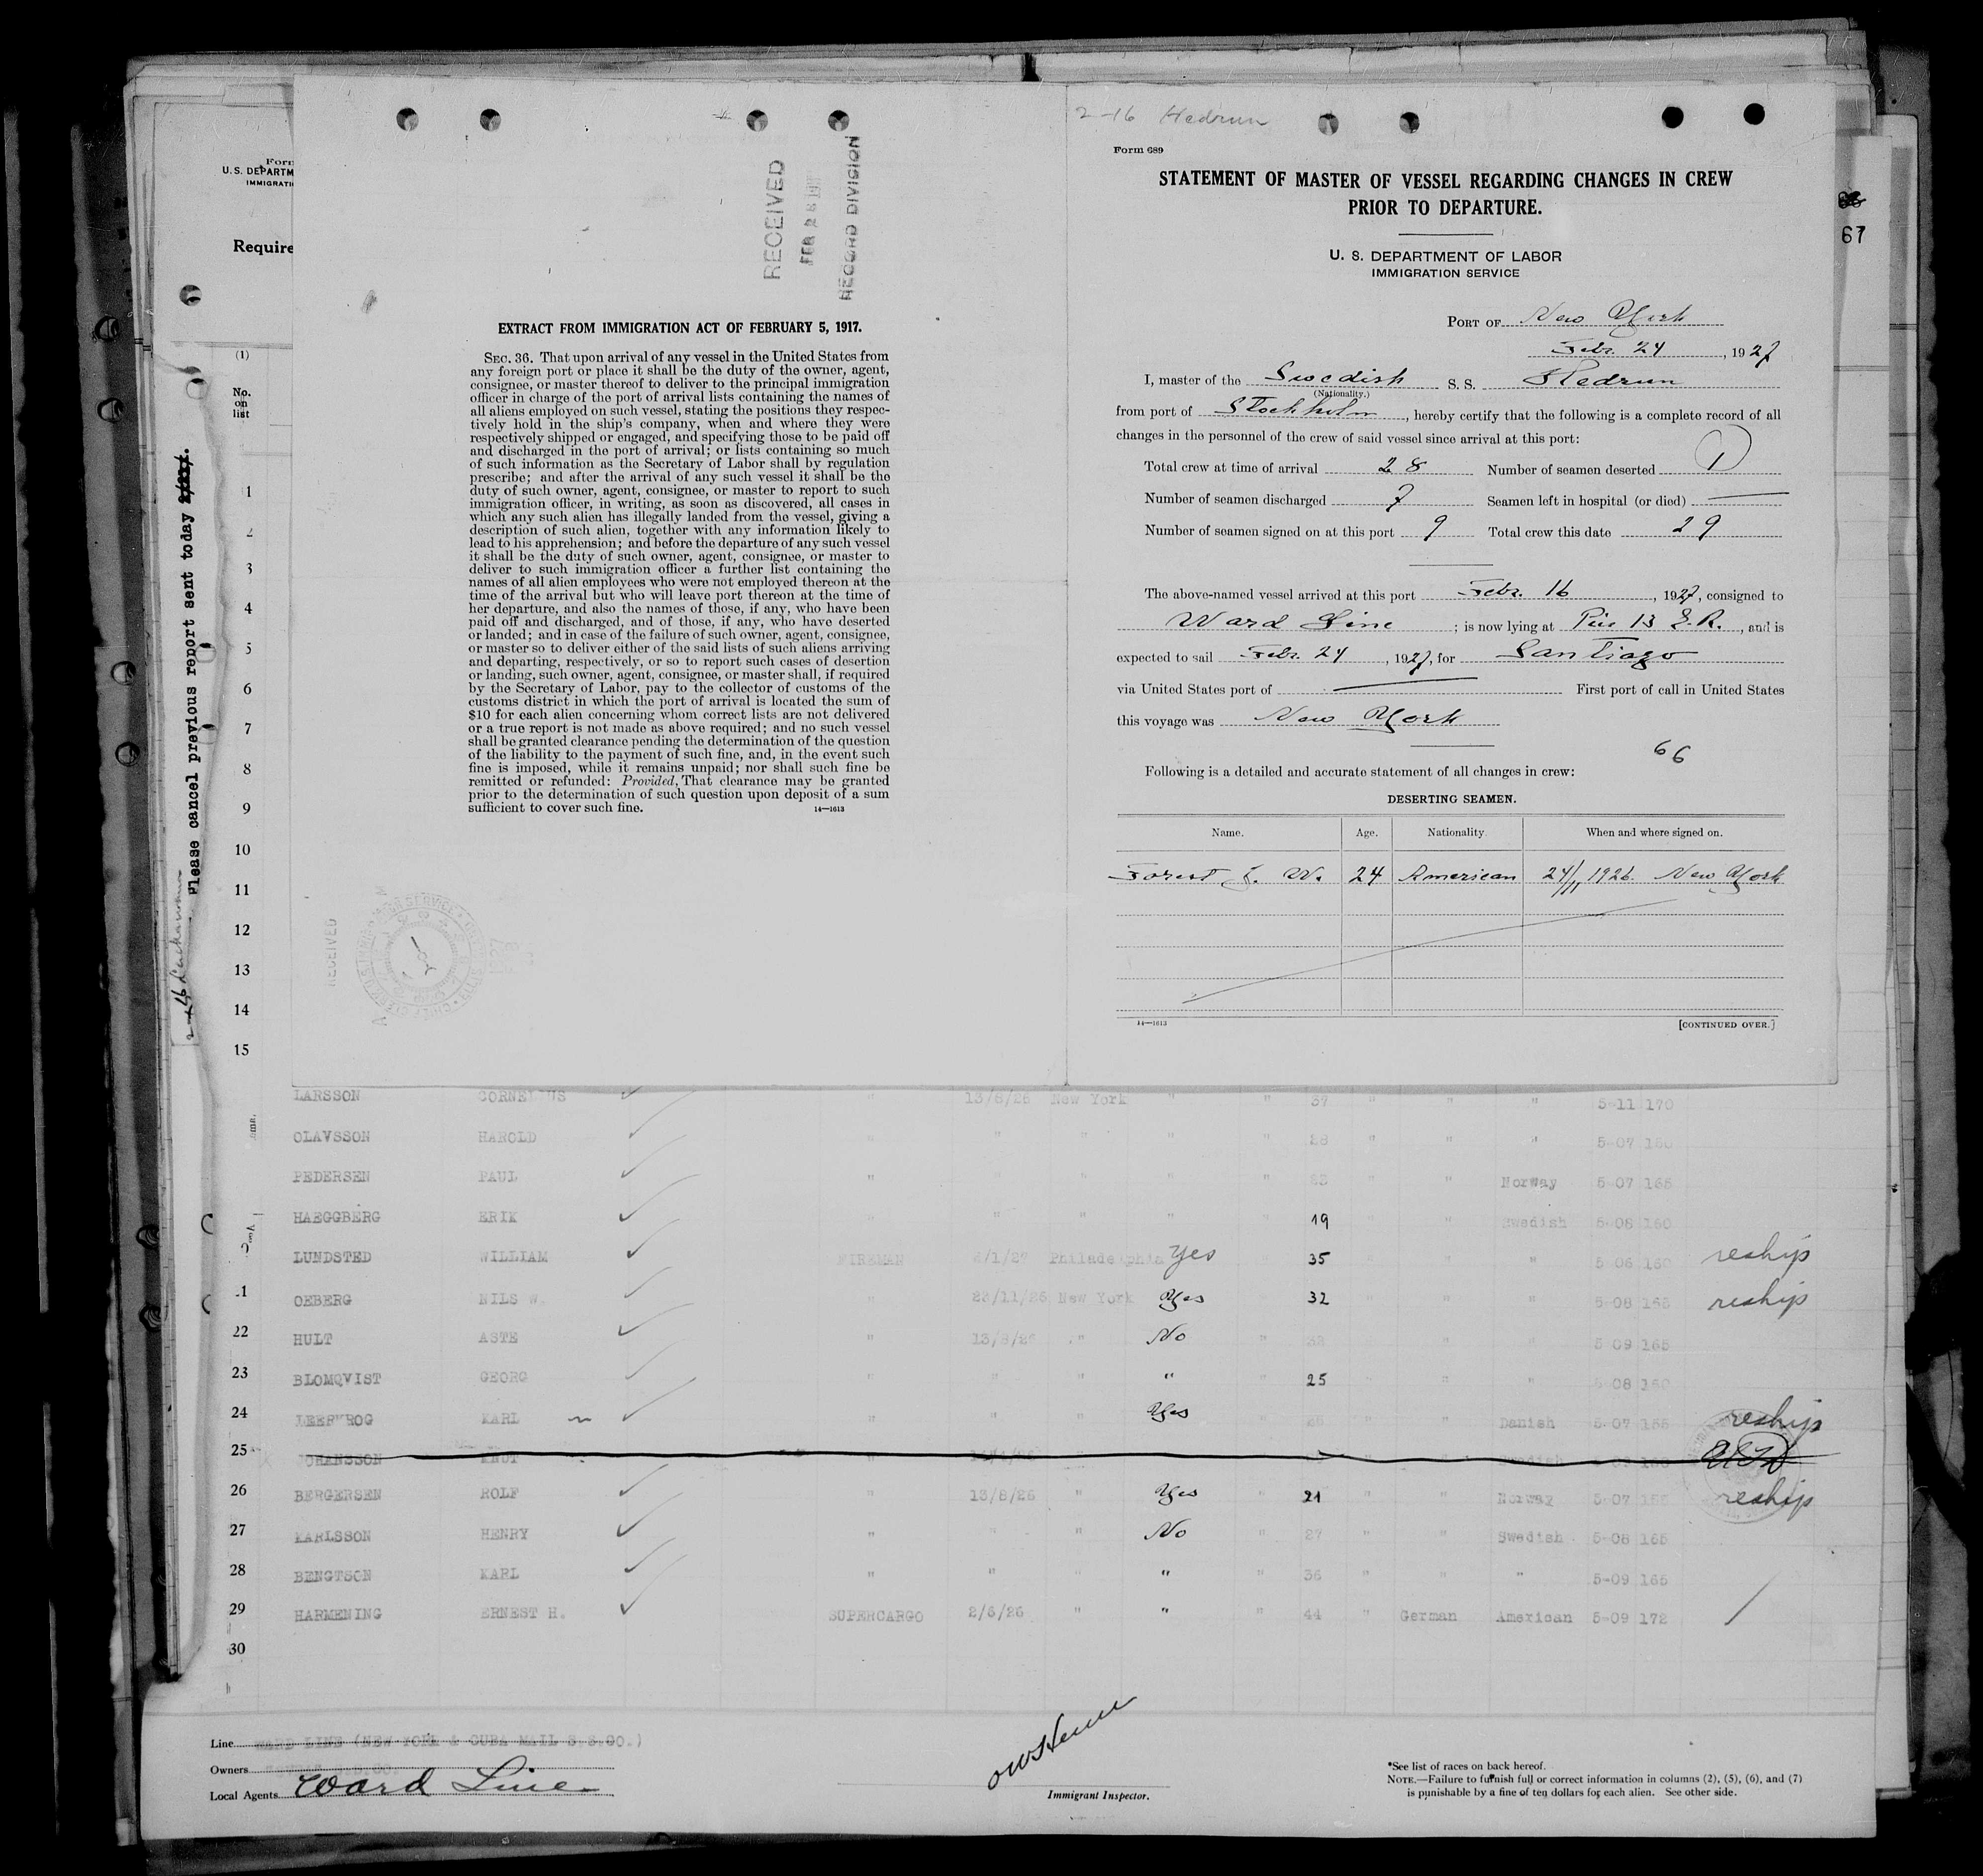 Form
U. S. DEPARTM
IMMIGRATI
Require
(1)
No.
on
list
1
2
3
4
5
6
7
8
9
10
11
12
13
14
15
Please cancel previous report sent today
RECEIVED
FEB 28
RECORD DIVISION
EXTRACT FROM IMMIGRATION ACT OF FEBRUARY 5, 1917.
SEC. 36. That upon arrival of any vessel in the United States from
any foreign port or place it shall be the duty of the owner, agent,
consignee, or master thereof to deliver to the principal immigration
officer in charge of the port of arrival lists containing the names of
all aliens employed on such vessel, stating the positions they respec-
tively hold in the ship's company, when and where they were
respectively shipped or engaged, and specifying those to be paid off
and discharged in the port of arrival; or lists containing so much
of such information as the Secretary of Labor shall by regulation
prescribe; and after the arrival of any such vessel it shall be the
duty of such owner, agent, consignee, or master to report to such
immigration officer, in writing, as soon as discovered, all cases in
which any such alien has illegally landed from the vessel, giving a
description of such alien, together with any information likely to
lead to his apprehension; and before the departure of any such vessel
it shall be the duty of such owner, agent, consignee, or master to
deliver to such immigration officer a further list containing the
names of all alien employees who were not employed thereon at the
time of the arrival but who will leave port thereon at the time of
her departure, and also the names of those, if any, who have been
paid off and discharged, and of those, if any, who have deserted
or landed; and in case of the failure of such owner, agent, consignee,
or master so to deliver either of the said lists of such aliens arriving
and departing, respectively, or so to report such cases of desertion
or landing, such owner, agent, consignee, or master shall, if required
by the Secretary of Labor, pay to the collector of customs of the
customs district in which the port of arrival is located the sum of
$10 for each alien concerning whom correct lists are not delivered
or a true report is not made as above required; and no such vessel
shall be granted clearance pending the determination of the question
of the liability to the payment of such fine, and, in the event such
fine is imposed, while it remains unpaid; nor shall such fine be
remitted or refunded: Provided, That clearance may be granted
prior to the determination of such question upon deposit of a sum
sufficient to cover such fine. 14—1613
RECEIVED
2-16 Hedrun
Form 689
STATEMENT OF MASTER OF VESSEL REGARDING CHANGES IN CREW
PRIOR TO DEPARTURE.
U. S. DEPARTMENT OF LABOR
IMMIGRATION SERVICE
67
PORT OF New York
Febr. 24, 1927
I, master of the Swedish S. S. Hedrun
(Nationality.)
from port of Stockholm, hereby certify that the following is a complete record of all
changes in the personnel of the crew of said vessel since arrival at this port:
Total crew at time of arrival 28 Number of seamen deserted 1
Number of seamen discharged 7 Seamen left in hospital (or died) —
Number of seamen signed on at this port 9 Total crew this date 29
The above-named vessel arrived at this port Febr. 16, 1927, consigned to
Ward Line; is now lying at Pier 13 E.R., and is
expected to sail Febr. 24, 1927, for Santiago
via United States port of — First port of call in United States
this voyage was New York
66
Following is a detailed and accurate statement of all changes in crew:
DESERTING SEAMEN.
Name. Age. Nationality. When and where signed on.
Forest J. W. 24 American 24/11 1926. New York
14—1613 [CONTINUED OVER.]
LARSSON CORNELIUS " 13/8/26 New York " " 37 " " " 5-11 170
OLAVSSON HAROLD " " " " " 28 " " " 5-07 160
PEDERSEN PAUL " " " " " " " Norway 5-07 165
HAEGGBERG ERIK " " " " 19 Swedish 5-08 160
LUNDSTED WILLIAM FIREMAN /1/27 Philadelphia Yes " 35 " " " 5 06 160 reship
OEBERG NILS W. " 23/11/26 New York Yes " 32 " " " 5-08 165 reship
22 HULT ASTE " 13/8/26 " No " " " 5 09 165
23 BLOMQVIST GEORG " " " " " 25 " " " 5-08 160
24 KARL " " " Yes " " " Danish 5-07 155 reship
25 JOHANSSON
26 BERGERSEN ROLF " 13/8/26 " Yes " 21 " " Norway 5-07 155 reship
27 KARLSSON HENRY " " " No " 27 " " Swedish 5-08 165
28 BENGTSON KARL " " " " " 36 " " " 5-09 165
29 HARMENING ERNEST H. SUPERCARGO 2/6/26 " " " 44 " German American 5-09 172
30
Line WARD LINE (NEW YORK & CUBA MAIL S.S.CO.)
Owners
Local Agents Ward Line
Immigrant Inspector.
*See list of races on back hereof.
NOTE.—Failure to furnish full or correct information in columns (2), (5), (6), and (7)
is punishable by a fine of ten dollars for each alien. See other side.